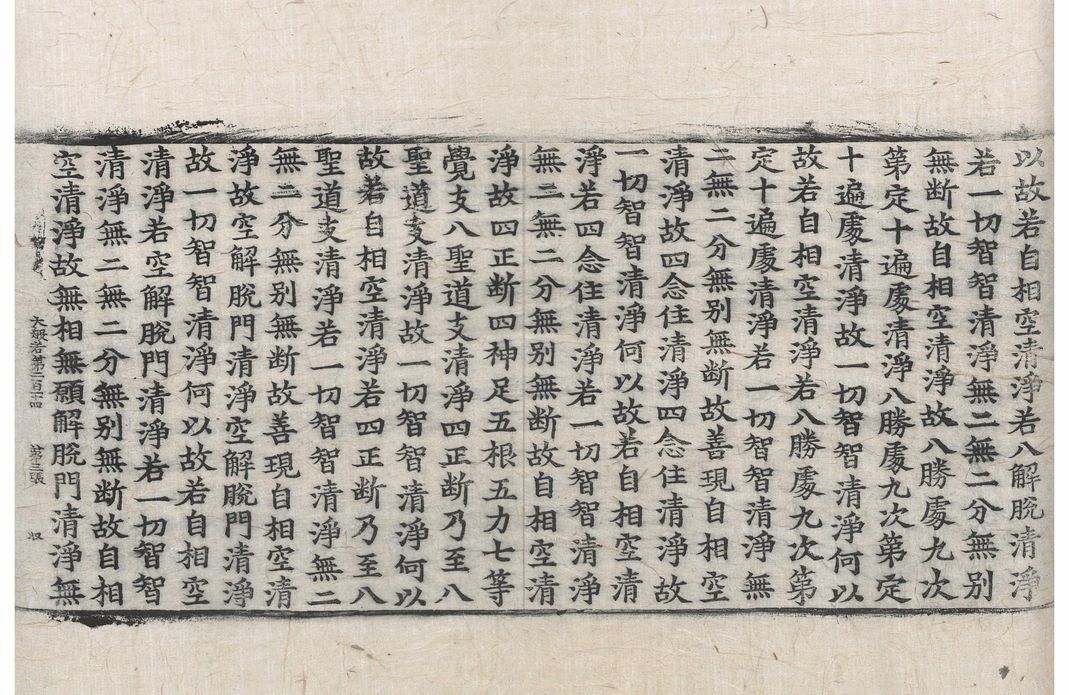 以故若自相空清淨若八解脫清淨
若一切智智清淨無二無二分無别
無断故自相空清淨故八勝處九次
第定十遍處清淨八勝處九次第定
十遍處清淨故一切智智清淨何以
故若自相空清淨若八勝處九次第
定十遍處清淨若一切智智清淨無
二無二分無别無断故善現自相空
清淨故四念住清淨四念住清淨故
一切智智清淨何以故若自相空清
淨若四念住清淨若一切智智清淨
無二無二分無别無断故自相空清
淨故四正断四神足五根五力七等
覺支八聖道支清淨四正断乃至八
聖道支清淨故一切智智清淨何以
故若自相空清淨若四正断乃至八
聖道支清淨若一切智智清淨無二
無二分無别無断故善現自相空清
淨故空解脫門清淨空解脫門清淨
故一切智智清淨何以故若自相空
清淨若空解脫門清淨若一切智智
清淨無二無二分無别無断故自相
空清淨故無相無願解脫門清淨無
大般若第二百十四 第三張